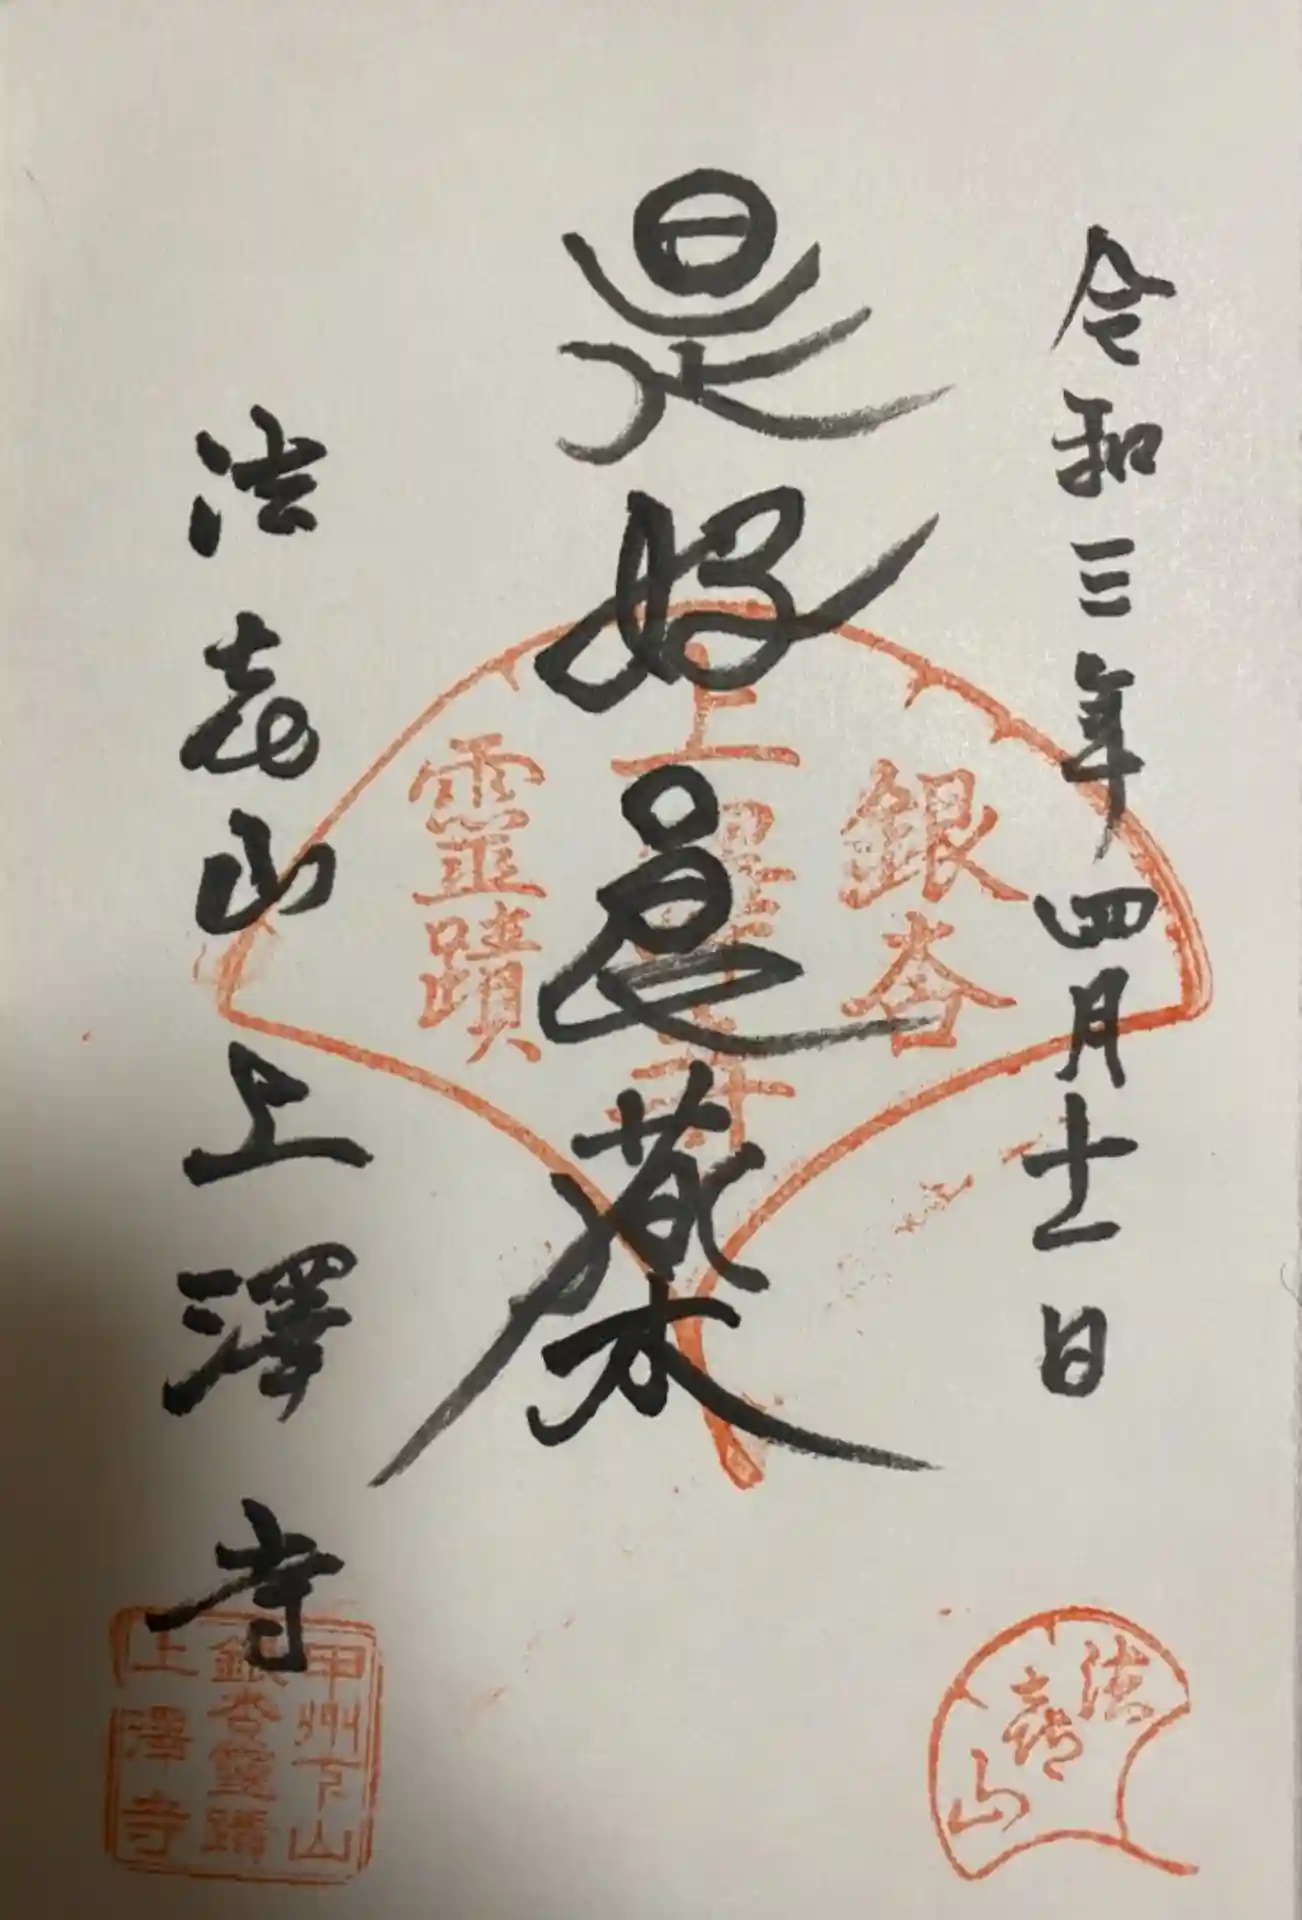 令和三年四月十一日
是好良薬
法㐂山上澤寺
銀杏
上澤寺
靈蹟
法喜山
甲州下山
銀杏靈蹟
上澤寺